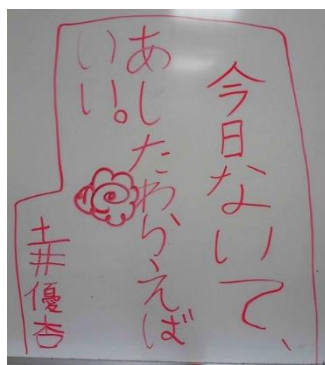 今日ないて、
あしたわらえば
いい。
土井優杏